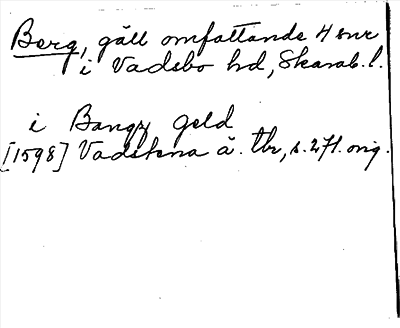 Berg, gäll omfattande 4 snr
i Vadsbo hd, Skarab. l.
i Bangz geld
[1598] Vadstena ä. tbr, s. 271. orig.